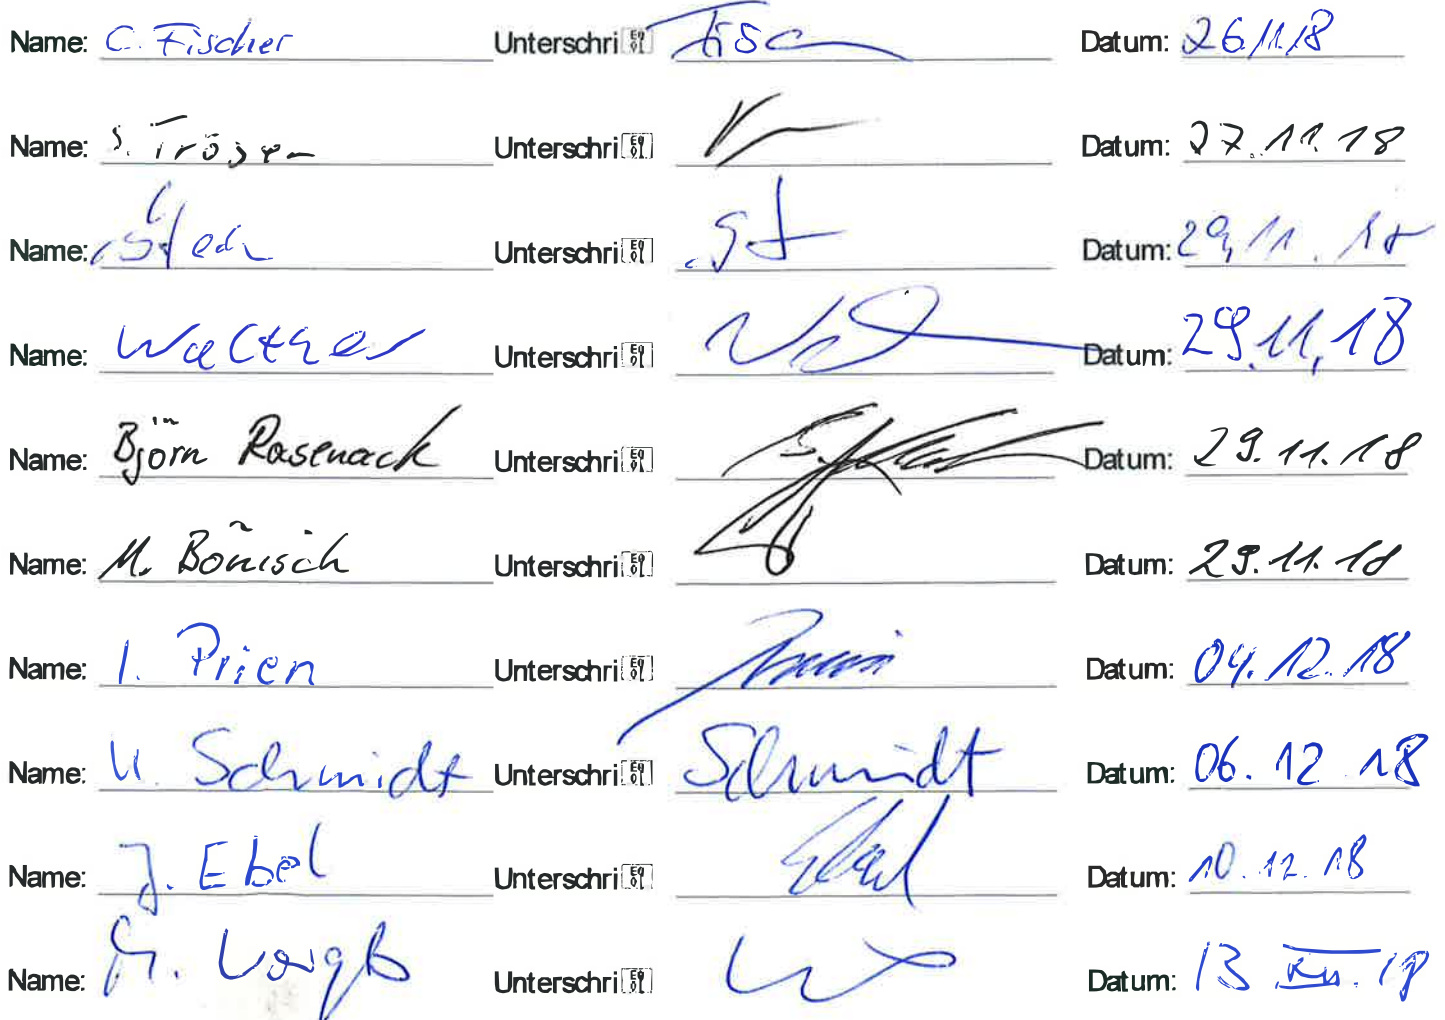 Name: C. Fischer Unterschri Fisc Datum: 26.11.18
Name: S. Unterschri Datum: 27.11.18
Name: Unterschri St Datum: 29.11.18
Name: Walther Unterschri Datum: 29.11.18
Name: Björn Rasenack Unterschri Datum: 29.11.18
Name: M. Bönisch Unterschri Datum: 29.11.18
Name: I. Prien Unterschri Prien Datum: 04.12.18
Name: U. Schmidt Unterschri Schmidt Datum: 06.12.18
Name: J. Ebel Unterschri Ebel Datum: 10.12.18
Name: Unterschri Datum: 13 XII. 18